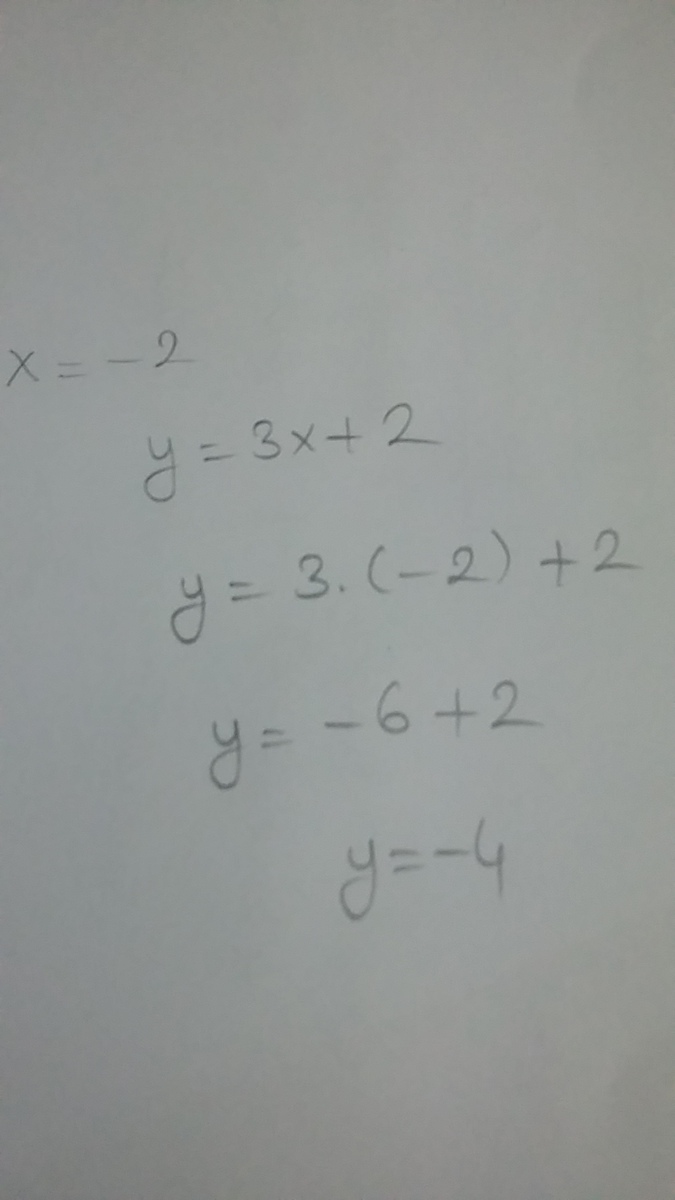 x = -2
y = 3x + 2
y = 3. (-2) + 2
y = -6 + 2
y = -4